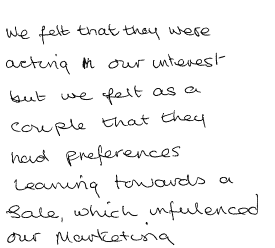 We felt that they were
acting in our interest
but we felt as a
couple that they
had preferences
leaning towards a
Sale, which infulenced
our Marketing